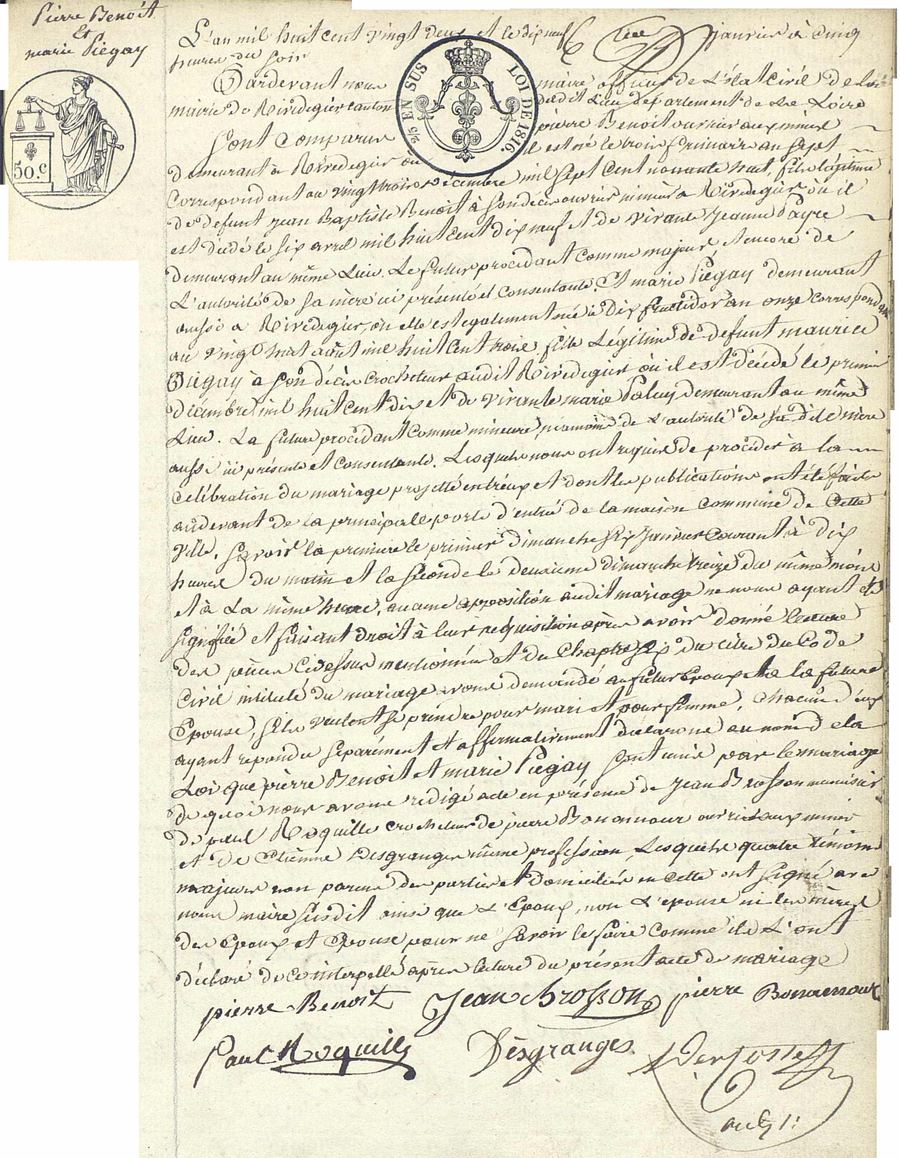 Pierre Benoit
Et
marie Piégay
50.c
25 EN SUS
LOI DE 1816.
L'an mil huit cent vingt deux et le dix neuf janvier à cinq
heures du soir
Pardevant nous maire officier de L'état Civil de la
mairie de Rivedegier canton dudit Lieu departement de La Loire
Sont Comparus pierre Benoit ouvrier aux mines
demeurant à Rivedegier ou il est né le trois frimaire an sept
Correspondant au vingt trois décembre mil sept Cent nonante huit, fils légitime
de defunt Jean Baptiste Benoit à son décès ouvrier mineur à Rivedegier où il
est décédé le six avril mil huit cent dix neuf et de vivante Jeanne Payre
demeurant au même Lieu. Le futur procédant Comme majeur et encore de
L'autorité de sa mère ici présente et Consentante. Et marie Piégay demeurant
aussi à Rivedegier, où elle est également née à dix fructidor an onze correspondant
au vingt huit août mil huit cent trois fille Légitime de defunt maurice
Piegay à son décès Crocheteur audit Rivedegier où il est décédé le premier
décembre mil huit cent dix et de vivante marie demeurant au même
Lieu. La future procédant Comme mineure de L'autorité de sa dite mère
aussi ici présente et consentante. Lesquels nous ont requis de procéder à la
célébration du mariage projetté entr'eux et dont les publications ont été faites
audevant de la principalle porte d'entrée de la maison commune de Cette
ville. Savoir la premiere le premier dimanche six janvier Courant à dix
heures du matin et la Seconde le deuxieme dimanche treize du même mois
et à La même heure, aucune opposition audit mariage ne nous ayant été
signifiée et faisant droit à leur réquisition après avoir donné lecture
des pièces Cidessus mentionnées et du Chapitre six du titre du Code
Civil intitulé du mariage avons demandé au futur Epoux et à la future
Epouse, s'ils veulent se prendre pour mari et pour femme, Chacun d'eux
ayant répondu séparément et affirmativement déclarons au nom de la
Loi que pierre Benoit et marie Piegay sont unis par le mariage
de quoi nous avons rédigé acte en présence de Jean Brosson menuisier
de paul Roquille crocheteur de pierre Bonamour ouvrier aux mines
et de Etienne Desgranges même profession, Lesquels quatre témoins
majeurs non parens des parties et domiciliés en Cette ont signé avec
nous maire susdit ainsi que L'Epoux, non L'épouse ni les mères
des Epoux et Epouse pour ne savoir le faire Comme ils L'ont
déclaré de ce interpellés après lecture du présent acte de mariage
pierre Benoit Jean Brosson pierre Bonamour
Paul Roquille Desgranges